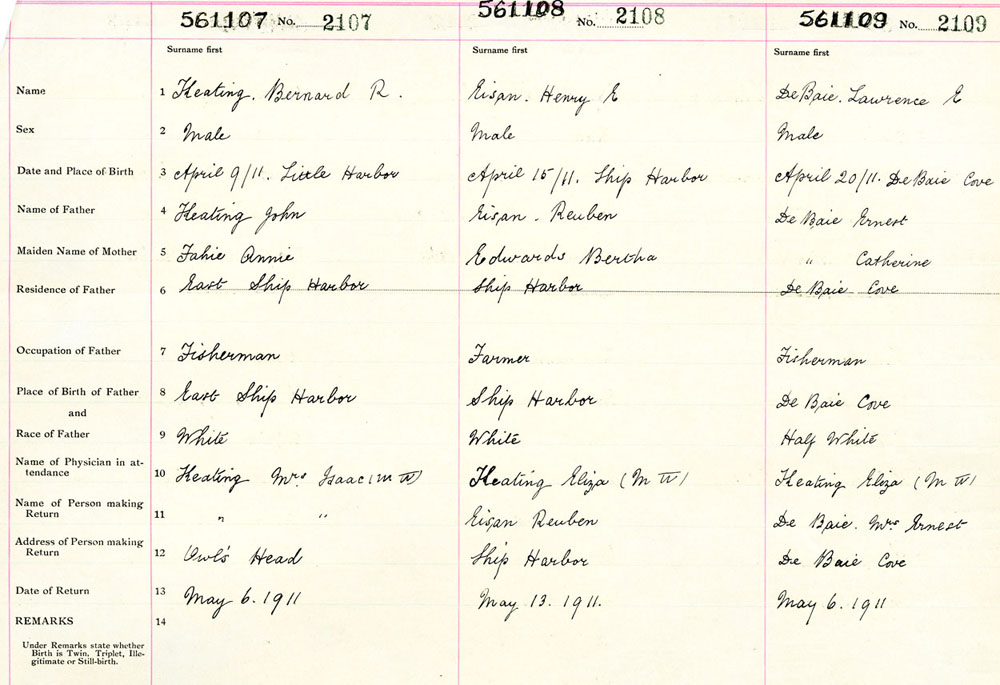 561107 No. 2107 561108 No. 2108 561109 No. 2109
Surname first Surname first Surname first
Name 1 Keating. Bernard R. Eisan. Henry E DeBaie. Lawrence E
Sex 2 Male Male Male
Date and Place of Birth 3 April 9/11. Little Harbor April 15/11. Ship Harbor April 20/11. DeBaie Cove
Name of Father 4 Keating John Eisan - Reuben De Baie Ernest
Maiden Name of Mother 5 Fahie Annie Edwards Bertha " Catherine
Residence of Father 6 East Ship Harbor Ship Harbor De Baie Cove
Occupation of Father 7 Fisherman Farmer Fisherman
Place of Birth of Father 8 East Ship Harbor Ship Harbor De Baie Cove
and
Race of Father 9 White White Half White
Name of Physician in at-
tendance 10 Keating Mrs Isaac (M W) Keating Eliza (M W) Keating Eliza (M W)
Name of Person making
Return 11 " " Eisan Reuben De Baie. Mrs Ernest
Address of Person making
Return 12 Owl's Head Ship Harbor De Baie Cove
Date of Return 13 May 6. 1911 May 13. 1911. May 6. 1911
REMARKS 14
Under Remarks state whether
Birth is Twin, Triplet, Ille-
gitimate or Still-birth.